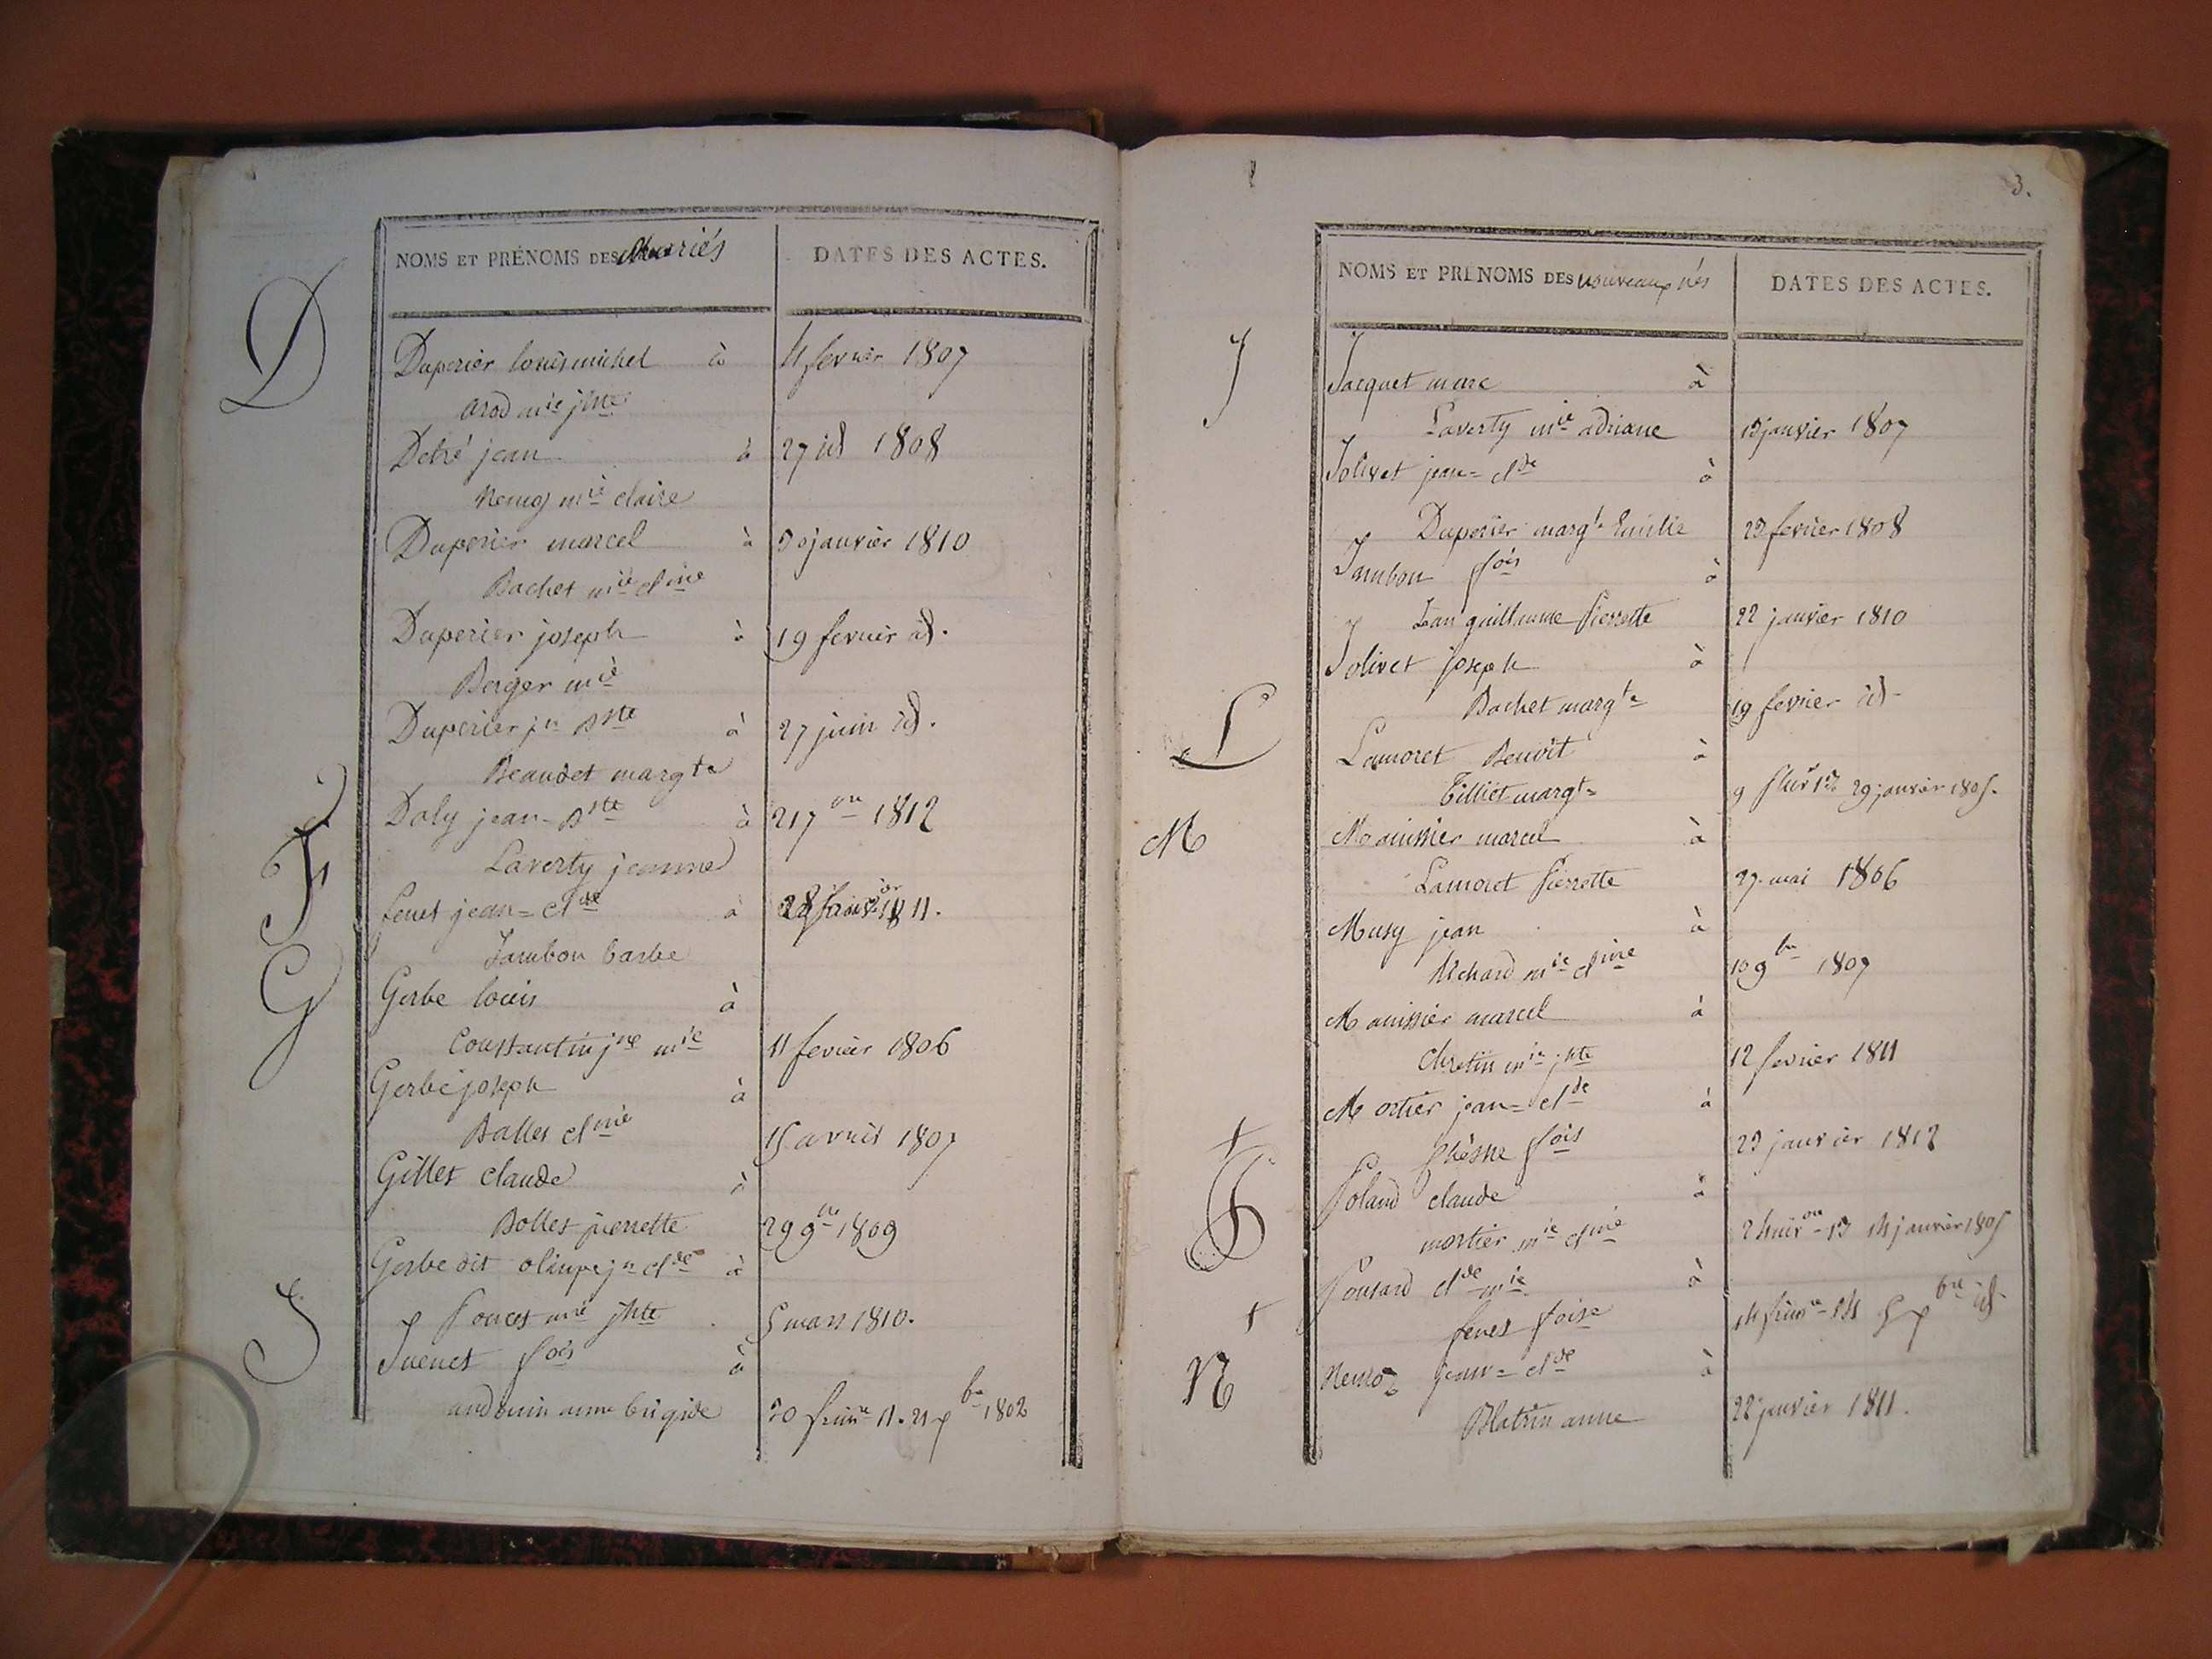 NOMS ET PRÉNOMS DES Mariés
DATES DES ACTES.
D
Duperier louis michel à 11 fevrier 1807
arod mie jhte
Debé jean à 27 id 1808
Nemoz mie claire
Duperier marcel à 30 janvier 1810
Bachet mie cline
Duperier joseph à 19 fevrier id.
Berger mie
Duperier jn Bste à 27 juin id.
Beaudet margte
Daly jean-Bste à 21 7bre 1812
Laverty jeanne
F
feuet jean=clde à 28 1811.
Jambon barbe
G
Gerbe louis à
Constantin jne mie 11 fevrier 1806
Gerbe joseph à
Balles cline 15 avril 1807
Gilles claude à
Bolles pierrette 29 9bre 1809
Gerbe dit olimpe jn clde à
Ponces mie jhte 5 mars 1810.
J
Juenet fois à
anne brigide 30 frimre 11. 21 xbre 1802
3.
NOMS ET PRÉNOMS DES nouveaux nés
DATES DES ACTES.
J
Jacquet marc à
Laverty mie adriane 13 janvier 1807
Jolivet jean=clde à
Duperier margte Emilie 23 fevrier 1808
Jambon fois à
Jean guillaume Pierrette 22 janvier 1810
Jolivet joseph à
Bachet margte 19 fevrier id.
L
Lamoret Benoît à
Tilliet margte 9 pluv 13 29 janvier 1805.
M
Manissier marcel à
Lamoret Pierrette 27 mai 1806
Musy jean à
Richard mie cline 10 9bre 1807
Manissier marcel à
Chretin mie jhte 12 fevrier 1811
Mortier jean=clde à
fois 23 janvier 1812
P
Poland claude à
mortier mie cline 24 niv 13 14 janvier 1805
Ponsard clde mie à
feuet foise 14 frimre 14 5 xbre id.
N
Nemoz jean=clde à
Blatrin anne 22 janvier 1811.